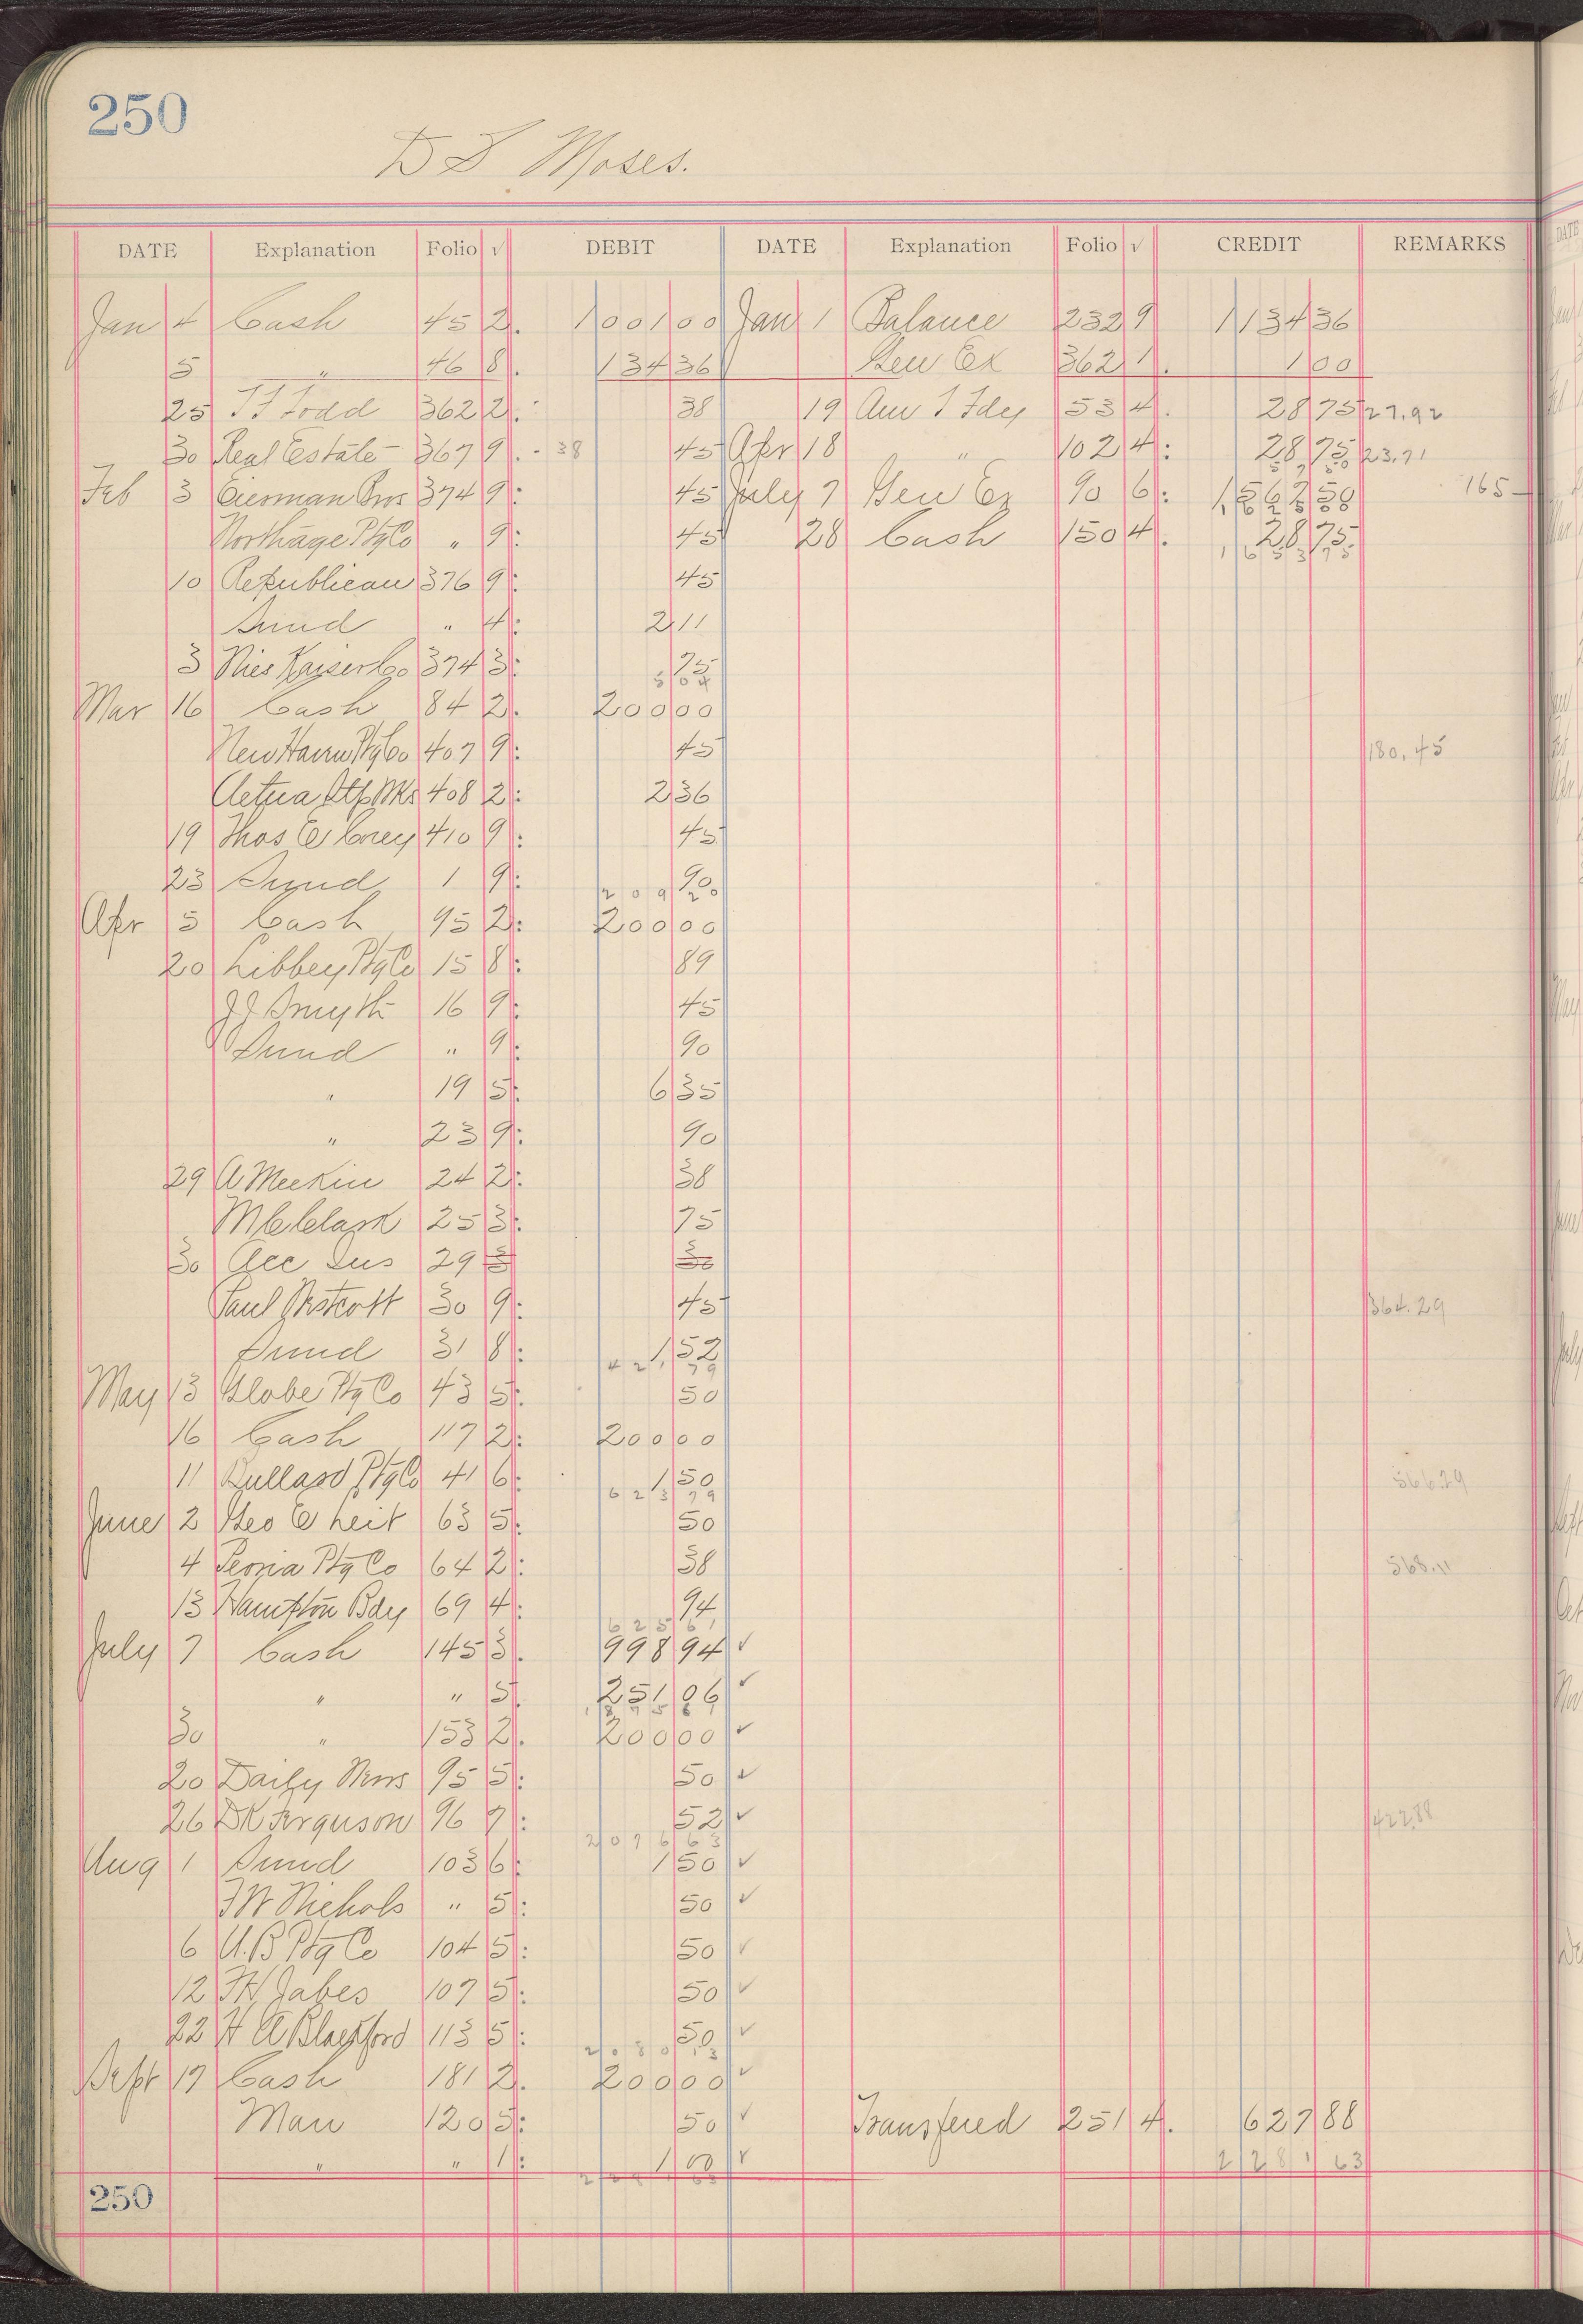 250
D S Moses.
DATE Explanation Folio √ DEBIT DATE Explanation Folio √ CREDIT REMARKS
Jan 4 Cash 45 2 100100 Jan 1 Balance 232 9 113436
5 " 46 8 13436 Gen Ex 362 1 100
25 Todd 362 2 38 19 Am T Fdey 53 4 2875 27.92
30 Real Estate 367 9 38 45 Apr 18 " 102 4 2875 23.71
Feb 3 Eierman Bros 374 9 45 July 7 Gen Ex 90 6 156750 165
Northage Ptg Co " 9 45 28 Cash 150 4 2875
1 6 5 3 7 5
10 Republican 376 9 45
Sund " 4 211
3 Nies Kaiser Co 374 3 75
5 04
Mar 16 Cash 84 2 20000
New Haven Ptg Co 407 9 45 180.45
Aetna Stp Wks 408 2 236
19 Thos E Corey 410 9 45
23 Sund 1 9 90
2 0 9 20
Apr 5 Cash 95 2 20000
20 Libbey Ptg Co 15 8 89
J J Smyth 16 9 45
Sund " 9 90
" 19 5 635
" 23 9 90
29 A Meekin 24 2 38
M C Clark 25 3 75
30 Acc Sus 29 3 30
Paul Wstcott 30 9 45 364.29
Sund 31 8 152
4 2 1 79
May 13 Globe Ptg Co 43 5 50
16 Cash 117 2 20000
11 Bullard Ptg Co 41 6 150 566.29
6 2 3 79
June 2 Geo E Leit 63 5 50
4 Peoria Ptg Co 64 2 38 568.11
13 Hampton Bdy 69 4 94
6 2 5 61
July 7 Cash 145 3 99894 √
" " 5 25106 √
1 8 7 5 6 1
30 " 153 2 20000 √
20 Daily News 95 5 50 √
26 D K Ferguson 96 7 52 √ 422.88
2 0 7 6 63
Aug 1 Sund 103 6 150 √
F W Nichols " 5 50 √
6 U.B Ptg Co 104 5 50 √
12 F H Jabes 107 5 50 √
22 H A Blackford 113 5 50 √
2 0 8 0 13
Sept 17 Cash 181 2 20000 √
Man 120 5 50 √ Transfered 251 4 62788
" " 1 100 √ 2 2 8 1 63
250